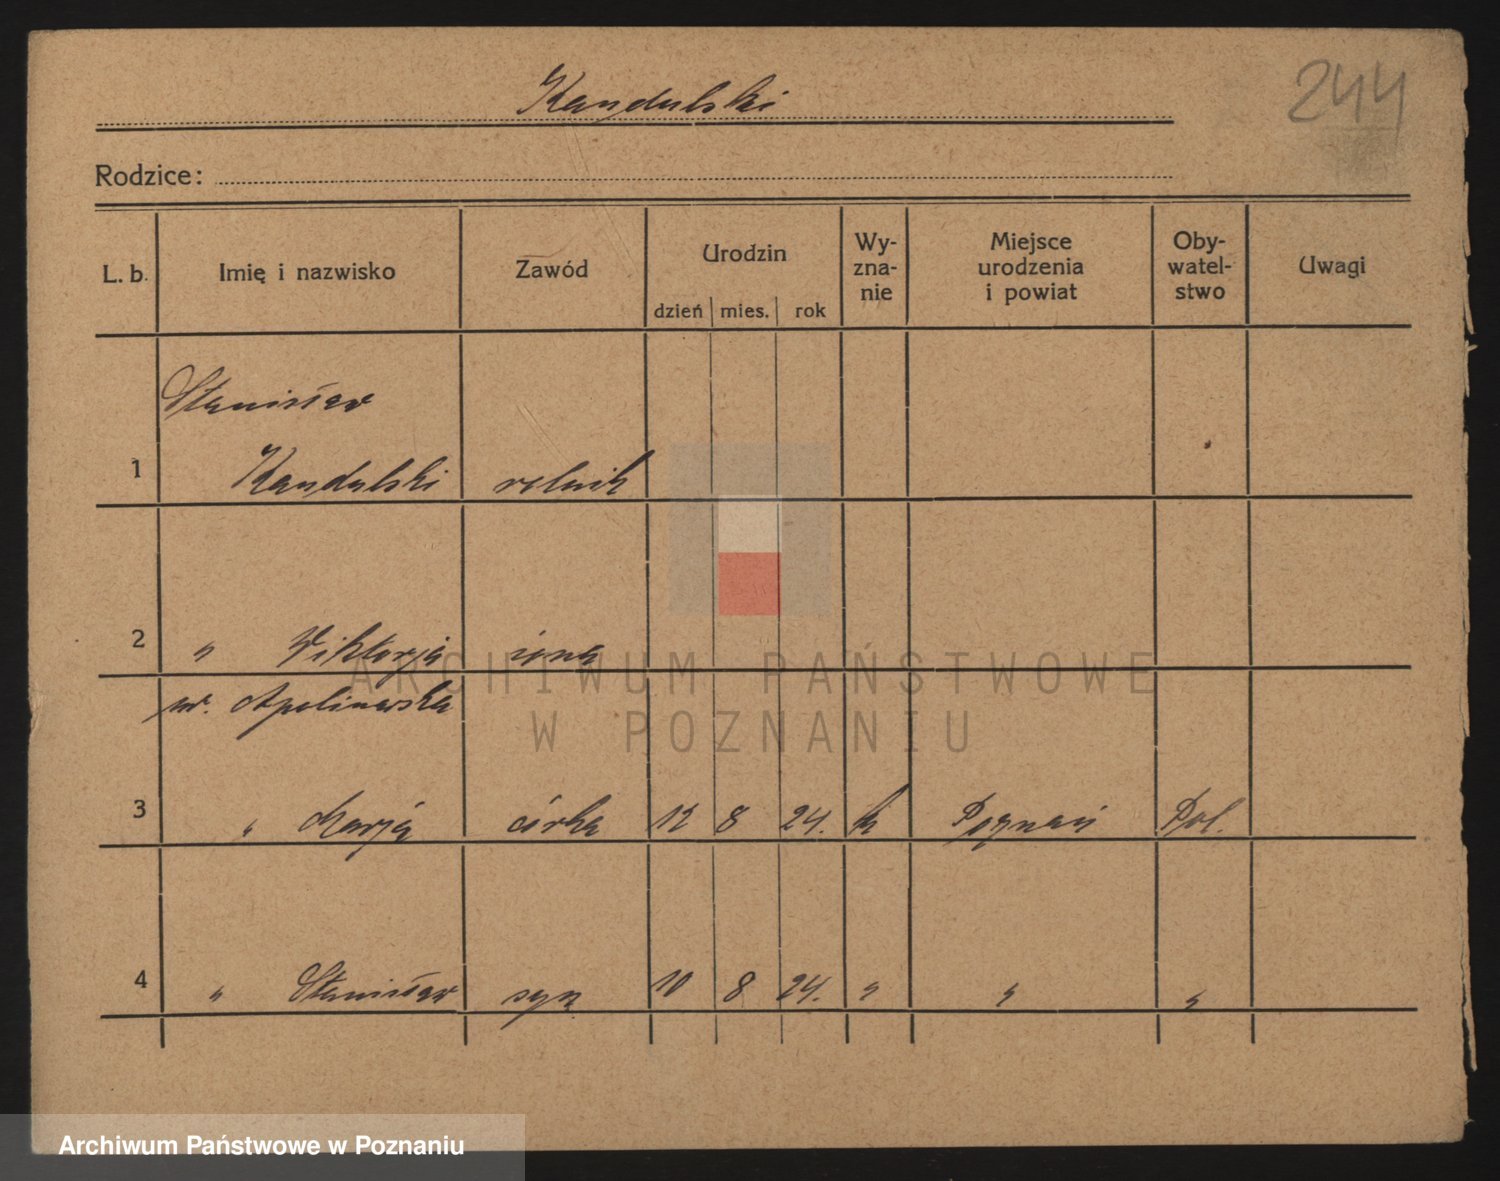 Kandulski
244
Rodzice:
L. b. Imię i nazwisko Zawód Urodzin dzień mies. rok Wy-zna-nie Miejsce urodzenia i powiat Oby-watel-stwo Uwagi
Stanisław
1 Kandulski rolnik
2 " Wiktorja żona
ur. Apolinarska
3 " Marja córka 12 8 24. k Poznań Pol.
4 " Stanisław syn 10 8 24. " " "
ARCHIWUM PAŃSTWOWE
W POZNANIU
Archiwum Państwowe w Poznaniu